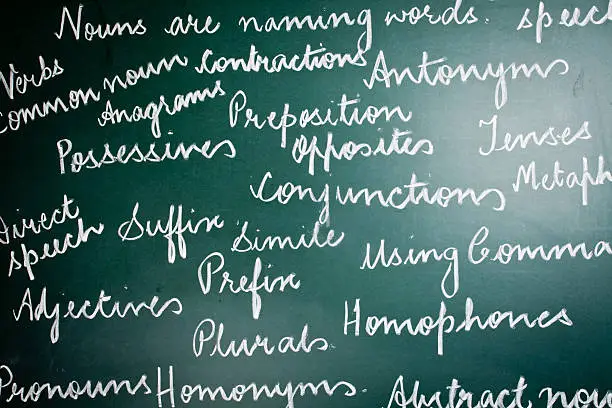 Nouns are naming words. speech
Verbs
Common noun contractions Antonyms
Anagrams Preposition
Possessives opposites Tenses
Conjunctions Metaph
Direct
speech Suffix Simile Using Comma
Prefix
Adjectives Homophones
Plurals
Pronouns Homonyms. Abstract nou